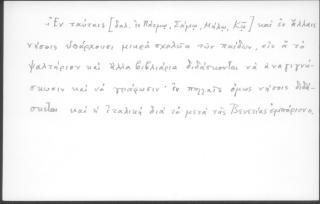 Ἐν ταύταις [δηλ. ἐν Πάτμῳ, Σάμῳ, Μήλῳ, Κῷ] καὶ ἐν ἄλλαις
νήσοις ὑπάρχουσι μικρὰ σχολεῖα τῶν παίδων, εἰς ἃ τὸ
ψαλτήριον καὶ ἄλλα βιβλιάρια διδάσκονται νὰ ἀναγιγνώ-
σκωσιν καὶ νὰ γράφωσιν· ἐν πολλαῖς ὅμως νήσοις διδά-
σκεται καὶ ἡ ἰταλικὴ διὰ τὸ μετὰ τῆς Βενετίας ἐμπόριον.